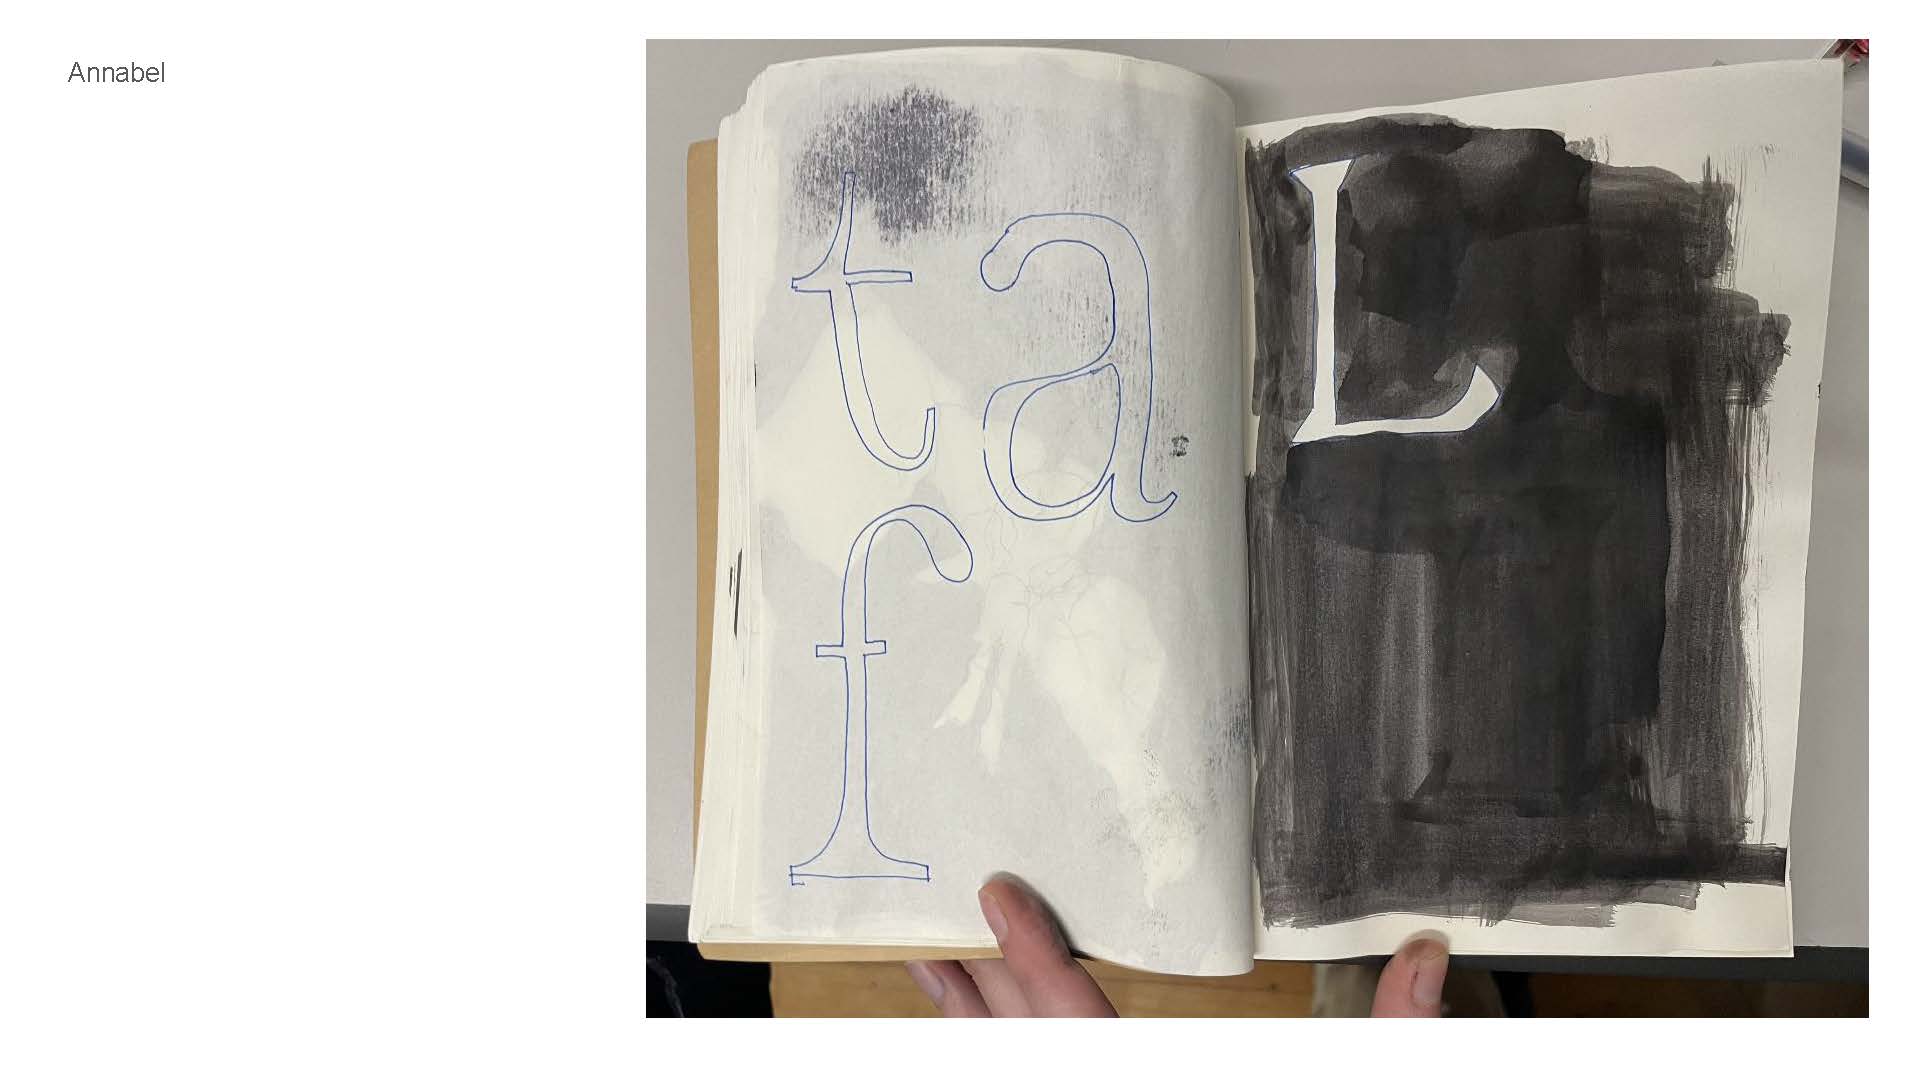 Annabel
t a
L
f